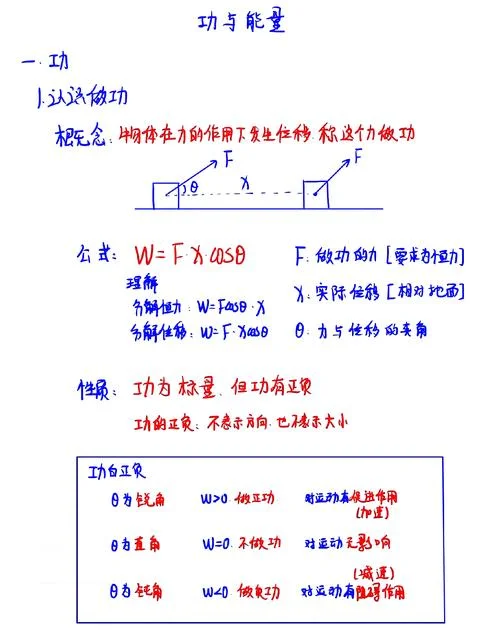 功与能量
一.功
1.认识做功
概念：物体在力的作用下发生位移 称这个力做功
F F
θ x
公式： W=F·x·cosθ F：做功的力 [要求为恒力]
理解 x：实际位移 [相对地面]
分解恒力：W=Fcosθ·x
分解位移：W=F·xcosθ θ：力与位移的夹角
性质： 功为标量，但功有正负
功的正负：不表示方向，也不表示大小
功的正负
θ为锐角 W>0. 做正功 对运动有促进作用
(加速)
θ为直角 W=0. 不做功 对运动无影响
(减速)
θ为钝角 W<0. 做负功 对运动有阻碍作用